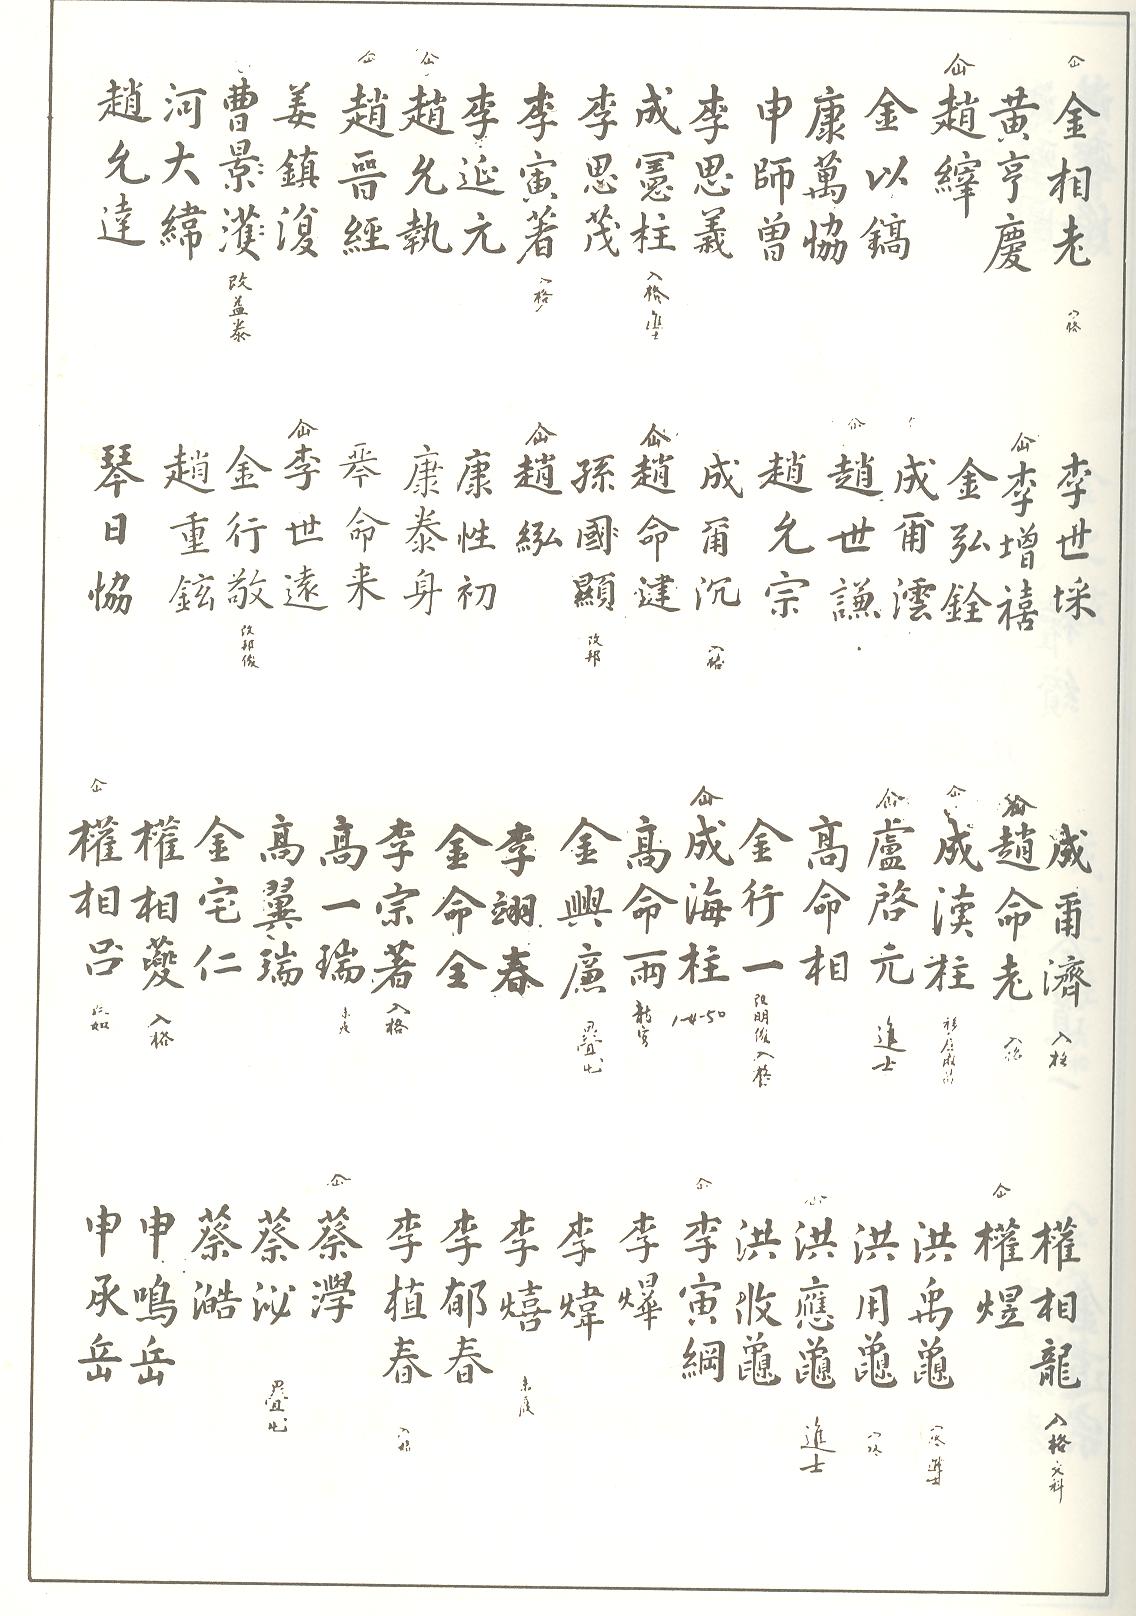 金相老 入格
黃亨慶
仚 趙縡
金以鎬
康萬恊
申師曾
李思義
成憲柱 入格 進士
李思茂
李寅著 入格
李延元
趙允執
趙晉經
姜鎮溭
曹景漢 改益泰
河大緯
趙允達
李世埰
仚 李增禧
金弘銓
成爾澐
趙世謙
趙允宗
成爾沉 入格
仚 趙命建
孫國顯 改邦
仚 趙紭
康性初
康泰身
琴命来
仚 李世遠
金行敬 改邦俊
趙重鉉
琴日恊
成爾濟 入格
趙命老 入格
成漢柱
盧啓元 進士
高命相
金行一 改明俊 入格
仚 成海柱 1-4-50
高命雨
金興廉 疊出
李翊春
金命全
李宗著 入格
高一瑞
高翼瑞
金宅仁
權相夔 入格
權相呂
權相龍 入格 文科
權煜
洪禹龜 入格 進士
洪用龜 入格
洪應龜 進士
洪攸龜
李寅綱
李燁
李煒
李熺
李郁春
李植春 入格
蔡㶅
蔡泌 疊出
蔡澔
申鳴岳
申承岳